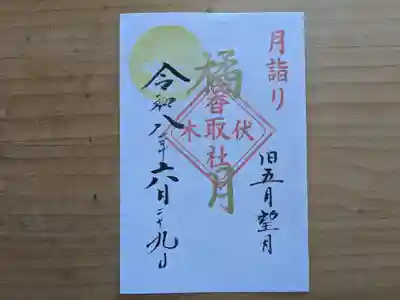 月詣り
旧五月望月
橘月
伏木
香取社
令和八年六月二十九日